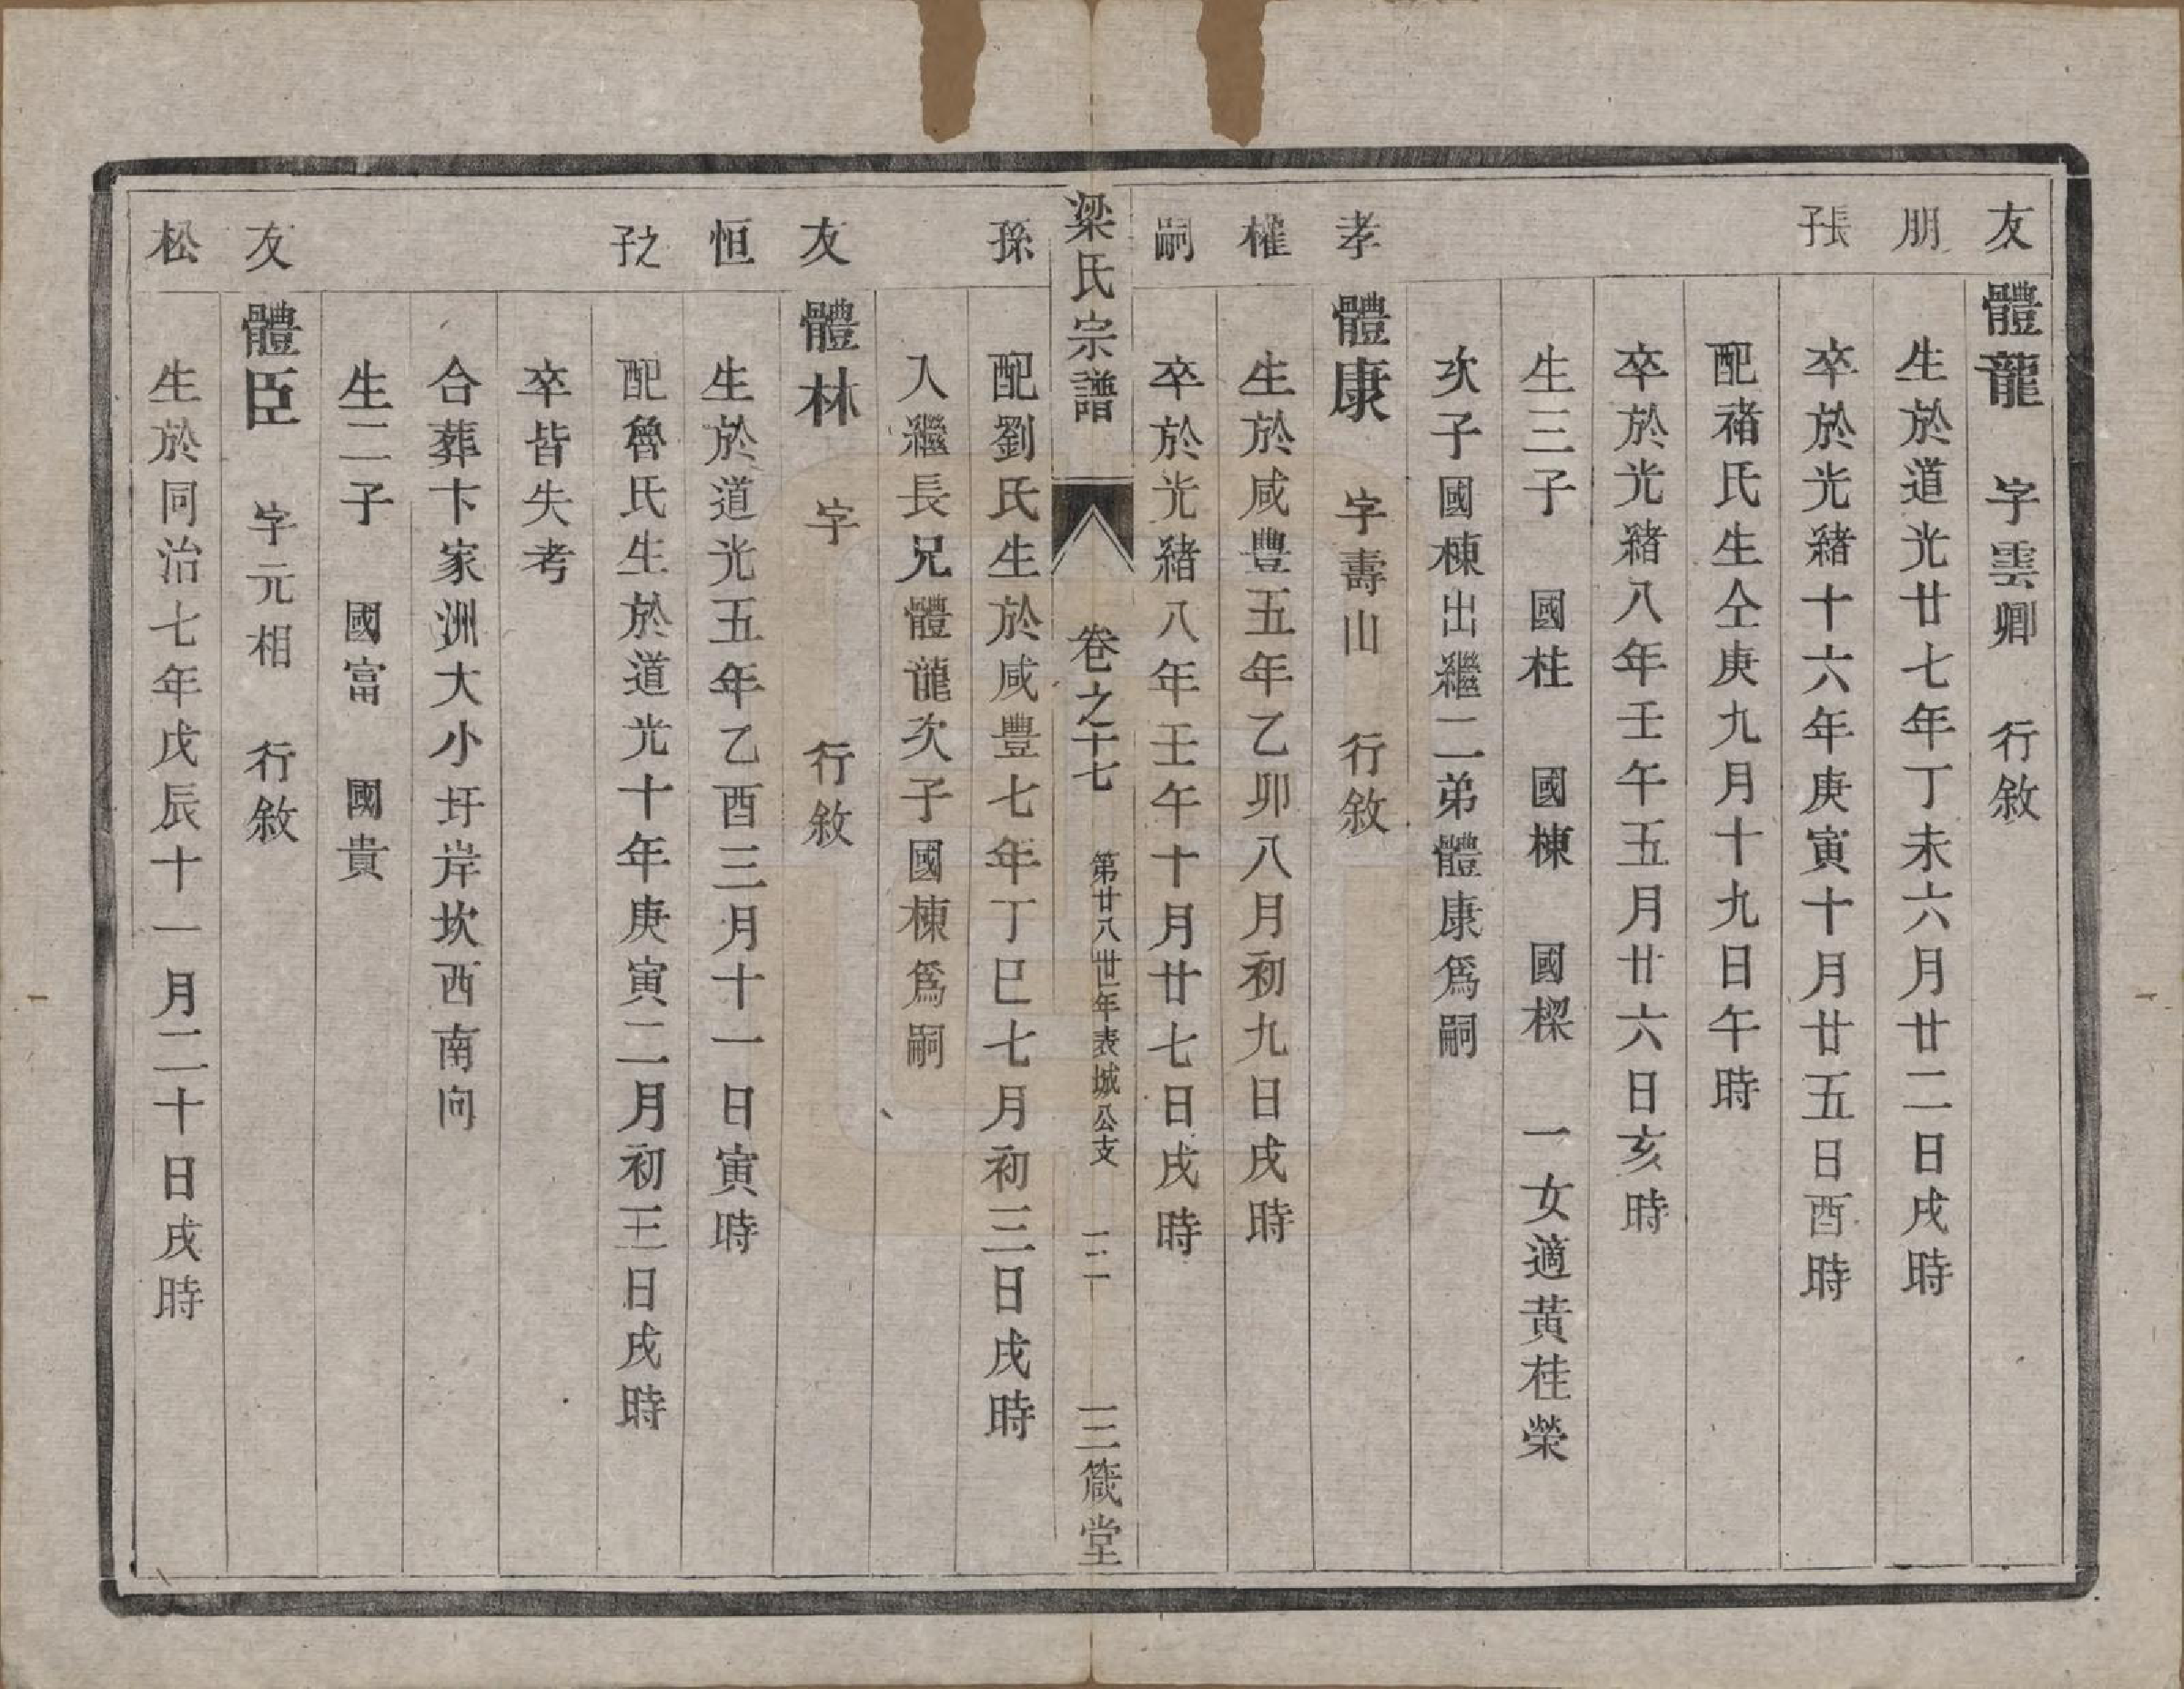 友　體龍　字雲卿　行敘
朋　生於道光廿七年丁未六月廿二日戌時
張子　卒於光緒十六年庚寅十月廿五日酉時
配褚氏生仝庚九月十九日午時
卒於光緒八年壬午五月廿六日亥時
生三子　國柱　國棟　國樑　一女適黃桂榮
次子國棟出繼二弟體康為嗣
孝　體康　字壽山　行敘
權　生於咸豐五年乙卯八月初九日戌時
嗣　卒於光緒八年壬午十月廿七日戌時
梁氏宗譜　卷之十七　第廿八世年表城公支　二　三箴堂
孫　配劉氏生於咸豐七年丁巳七月初三日戌時
入繼長兄體龍次子國棟為嗣
友　體林　字　行敘
恒　生於道光五年乙酉三月十一日寅時
之子　配魯氏生於道光十年庚寅二月初三日戌時
卒皆失考
合葬卞家洲大小圩岸坎西南向
生二子　國富　國貴
友　體臣　字元相　行敘
松　生於同治七年戊辰十一月二十日戌時